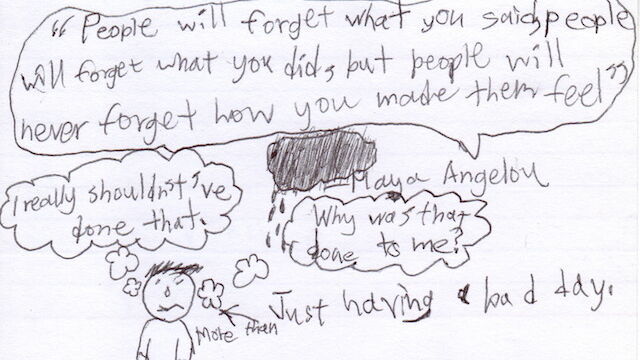 "People will forget what you said, people
will forget what you did, but people will
never forget how you made them feel"
- Maya Angelou
I really shouldn't've
done that.
Why was that
done to me?
More than
Just having a bad day.